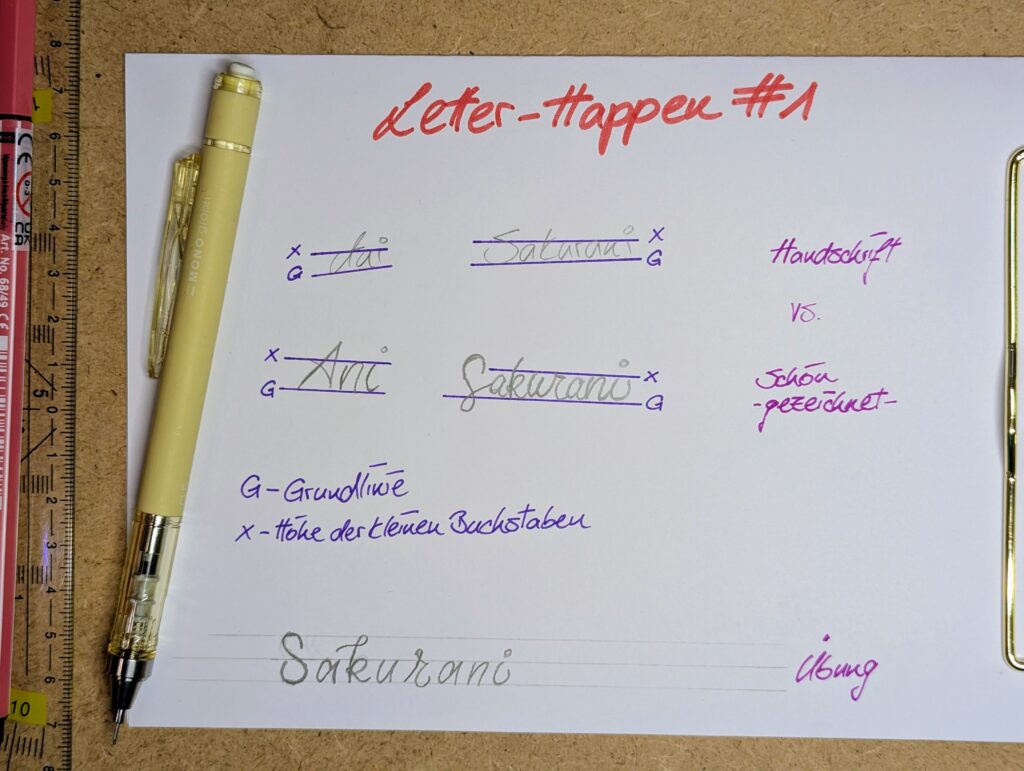 Letter-Happen #1
x Ani
G
Sakurani x
G
Handschrift
vs.
x Ani
G
Sakurani x
G
schön
-gezeichnet-
G-Grundlinie
x-Höhe der kleinen Buchstaben
Sakurani
Übung
MONO graph
Art. No. 68/49 CE
CE
0-3
UK
CA
8
7
6
5
4
3
2
1
0
1
2
3
4
5
6
7
1
5
10